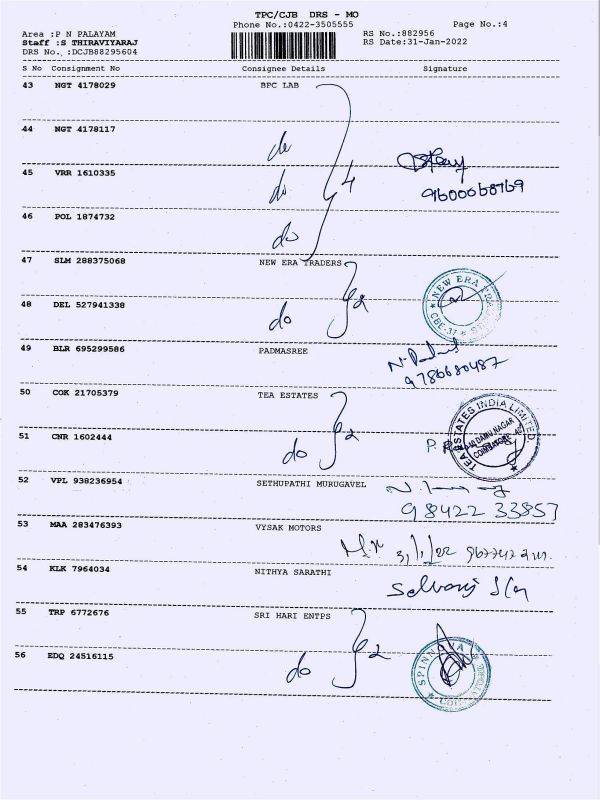 TPC/CJB DRS - MO
Phone No.:0422-3505555 Page No.:4
Area :P N PALAYAM RS No.:882956
Staff :S THIRAVIYARAJ RS Date:31-Jan-2022
DRS No., :DCJB88295604
S No Consignment No Consignee Details Signature
43 NGT 4178029 BPC LAB
44 NGT 4178117 do
45 VRR 1610335 do 4
9600068769
46 POL 1874732 do
47 SLM 288375068 NEW ERA TRADERS
NEW ERA
CBE-37
48 DEL 527941338 do 2
49 BLR 695299586 PADMASREE
9786680487
50 COK 21705379 TEA ESTATES
TEA ESTATES INDIA LIMITED.
51 CNR 1602444 do 2
52 VPL 938236954 SETHUPATHI MURUGAVEL
98422 33857
53 MAA 283476393 VYSAK MOTORS
31/1/22
54 KLK 7964034 NITHYA SARATHI
55 TRP 6772676 SRI HARI ENTPS
56 EDQ 24516115 do 2